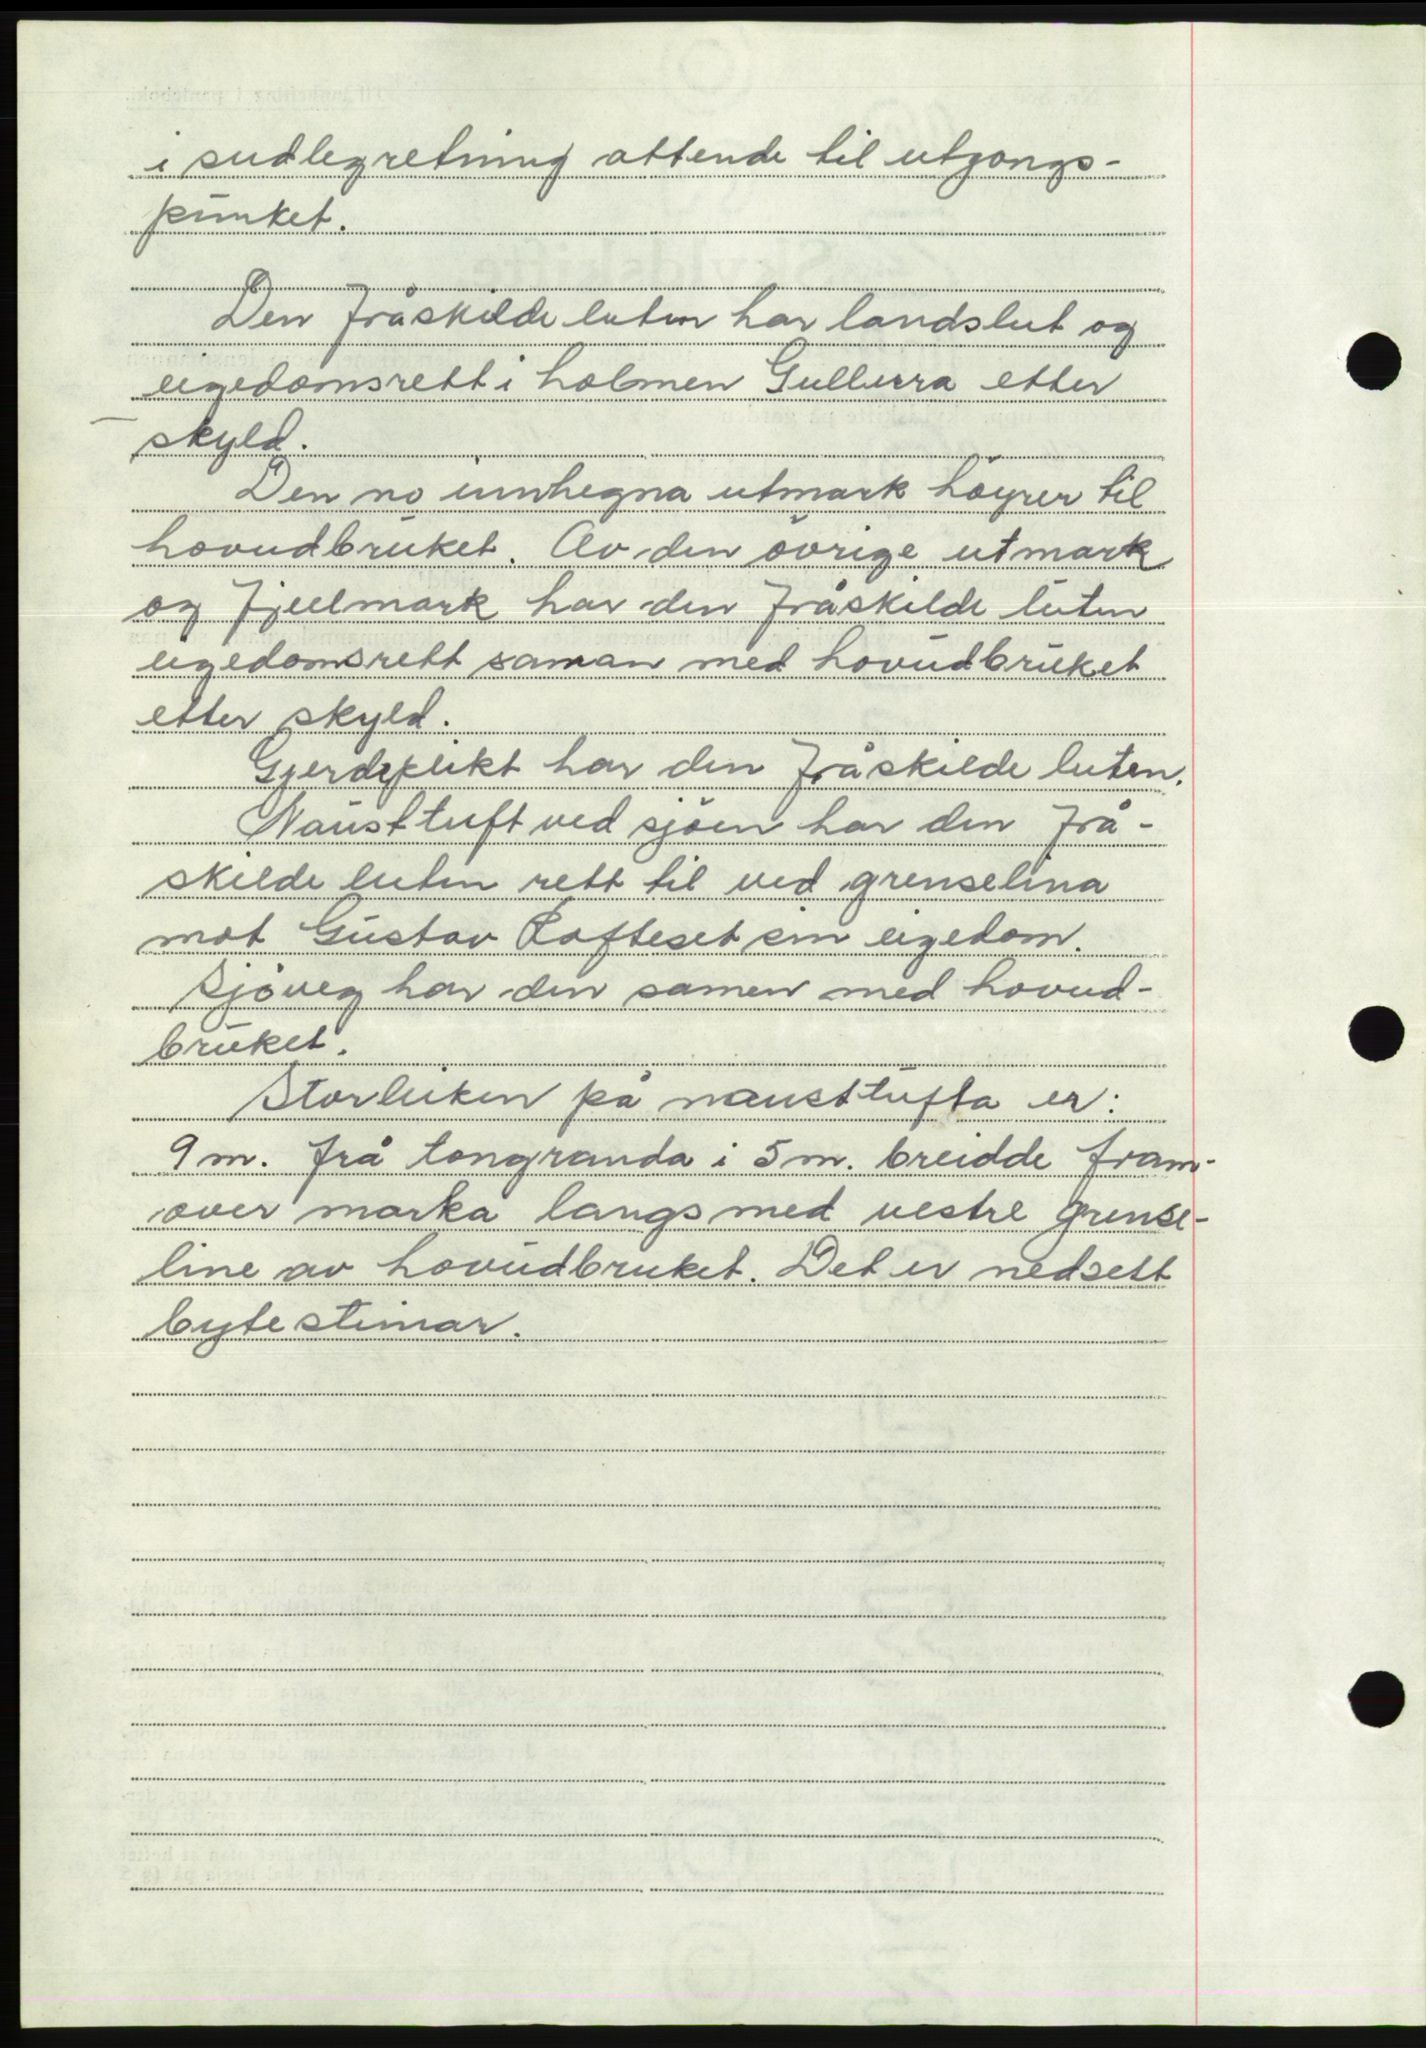 i sudlegretning attende til utgongs-
punket.
Den fråskilde luten har landslut og
eigedomsrett i holmen Gullurra etter
skyld.
Den no innhegna utmark höyrer til
hovudbruket. Av den övrige utmark
og fjellmark har den fråskilde luten
eigedomsrett saman med hovudbruket
etter skyld.
Gjerdeplikt har den fråskilde luten.
Nausttuft ved sjöen har den frå-
skilde luten rett til ved grenselina
mot Gustav Lofteset sin eigedom.
Sjöveg har den samen med hovud-
bruket.
Storleiken på nausttufta er:
9 m. frå tongranda i 5 m. breidde fram-
over marka langs med vestre grense-
line av hovudbruket. Det er nedsett
bytestinar.